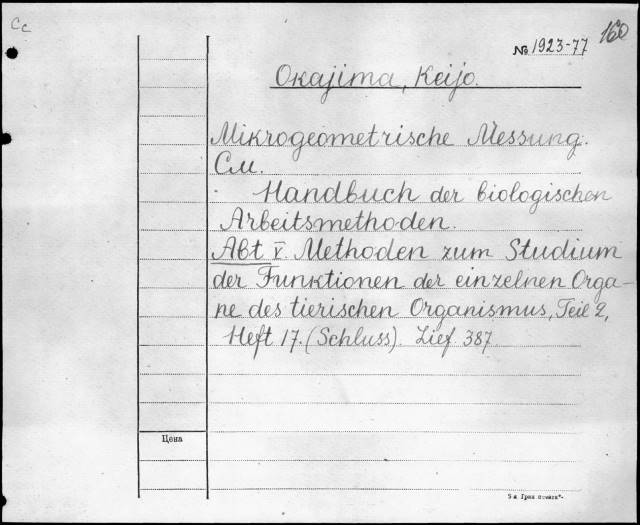 Cc
160
№ 1923-77
Okajima, Keijo.
Mikrogeometrische Messung.
См.
Handbuch der biologischen
Arbeitsmethoden.
Abt V. Methoden zum Studium
der Funktionen der einzelnen Orga-
ne des tierischen Organismus, Teil 2,
Heft 17. (Schluss). Lief. 387.
Цена